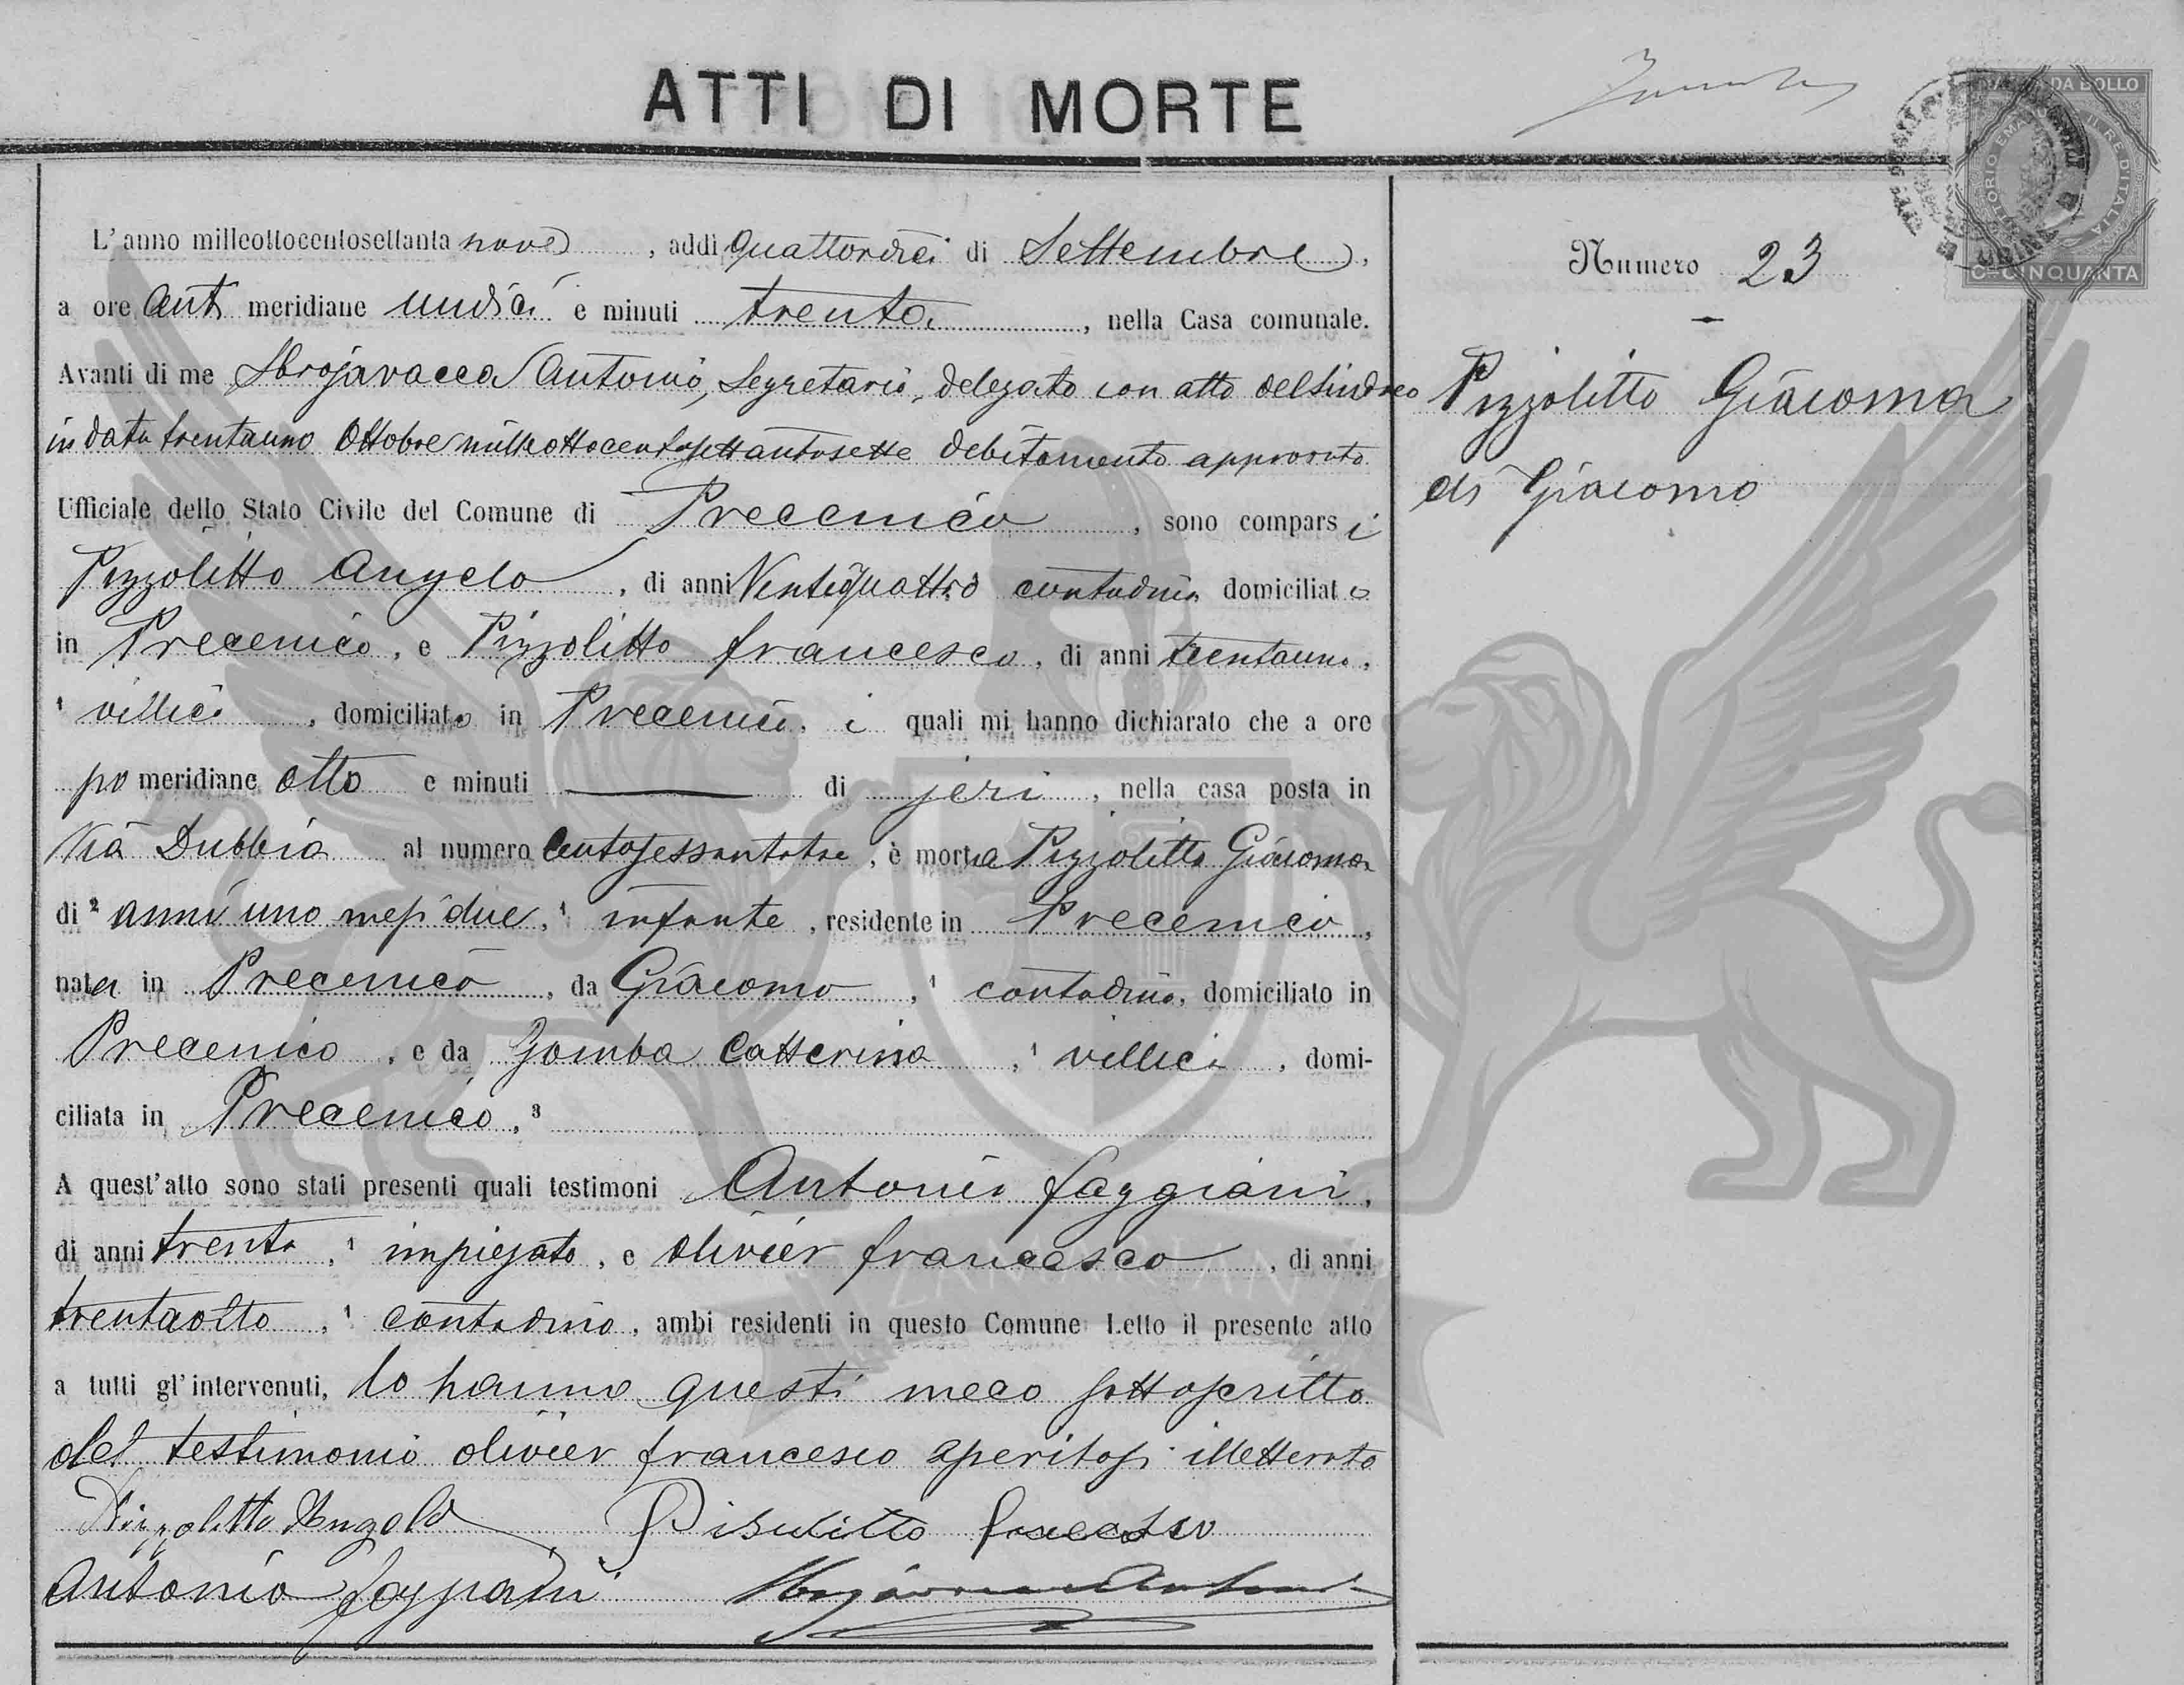 ATTI DI MORTE
L'anno milleottocentosettanta nove, addì quattordici di Settembre,
a ore Ant meridiane undici e minuti trenta, nella Casa comunale.
Avanti di me Sbrojavacca Antonio, Segretario, delegato con atto del Sindaco
in data trentauno Ottobre milleottocentosettantasette debitamente approvato
Ufficiale dello Stato Civile del Comune di Precenico, sono compars i
Pizzolitto Angelo, di anni Ventiquattro contadino domiciliato
in Precenico, e Pizzolitto Francesco, di anni trentauno,
¹ villici, domiciliato in Precenico, i quali mi hanno dichiarato che a ore
po meridiane otto e minuti — di jeri, nella casa posta in
Via Dubbia al numero Centosessantatre, è morta Pizzolitto Giacoma
di ² anni uno mesi due, ¹ infante, residente in Precenico,
nata in Precenico, da Giacomo, ¹ contadino, domiciliato in
Precenico, e da Zomba Catterina, ¹ villici, domi-
ciliata in Precenico, ³
A quest'atto sono stati presenti quali testimoni Antonio Faggiani,
di anni trenta, ¹ impiegato, e Olivier Francesco, di anni
trentaotto, ¹ contadino, ambi residenti in questo Comune. Letto il presente atto
a tutti gl'intervenuti, lo hanno questi meco sottoscritto
del testimonio Olivier Francesco illetterato
Pizzolitto Angelo Francesco
Antonio Faggiani
Numero 23
Pizzolitto Giacoma
di Giacomo
DA BOLLO
II RE D'ITALIA
CINQUANTA